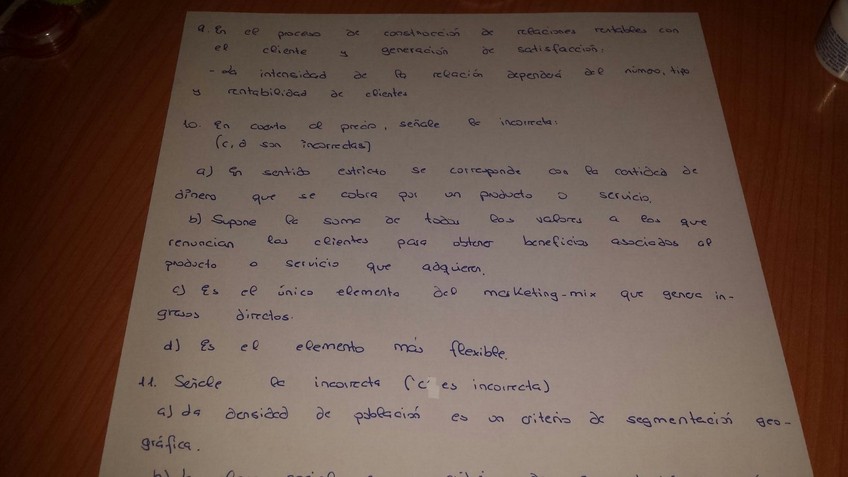 9. En el proceso de construcción de relaciones rentables con
el cliente y generación de satisfacción:
- La intensidad de la relación dependerá del número, tipo
y rentabilidad de clientes
10. En cuanto al precio, señale la incorrecta:
(c, d son incorrectas)
a) En sentido estricto se corresponde con la cantidad de
dinero que se cobra por un producto o servicio.
b) Supone la suma de todos los valores a los que
renuncian los clientes para obtener beneficios asociados al
producto o servicio que adquieren.
c) Es el único elemento del marketing-mix que genera in-
gresos directos.
d) Es el elemento más flexible.
11. Señale la incorrecta ("c" es incorrecta)
a) La densidad de población es un criterio de segmentación geo-
gráfica.